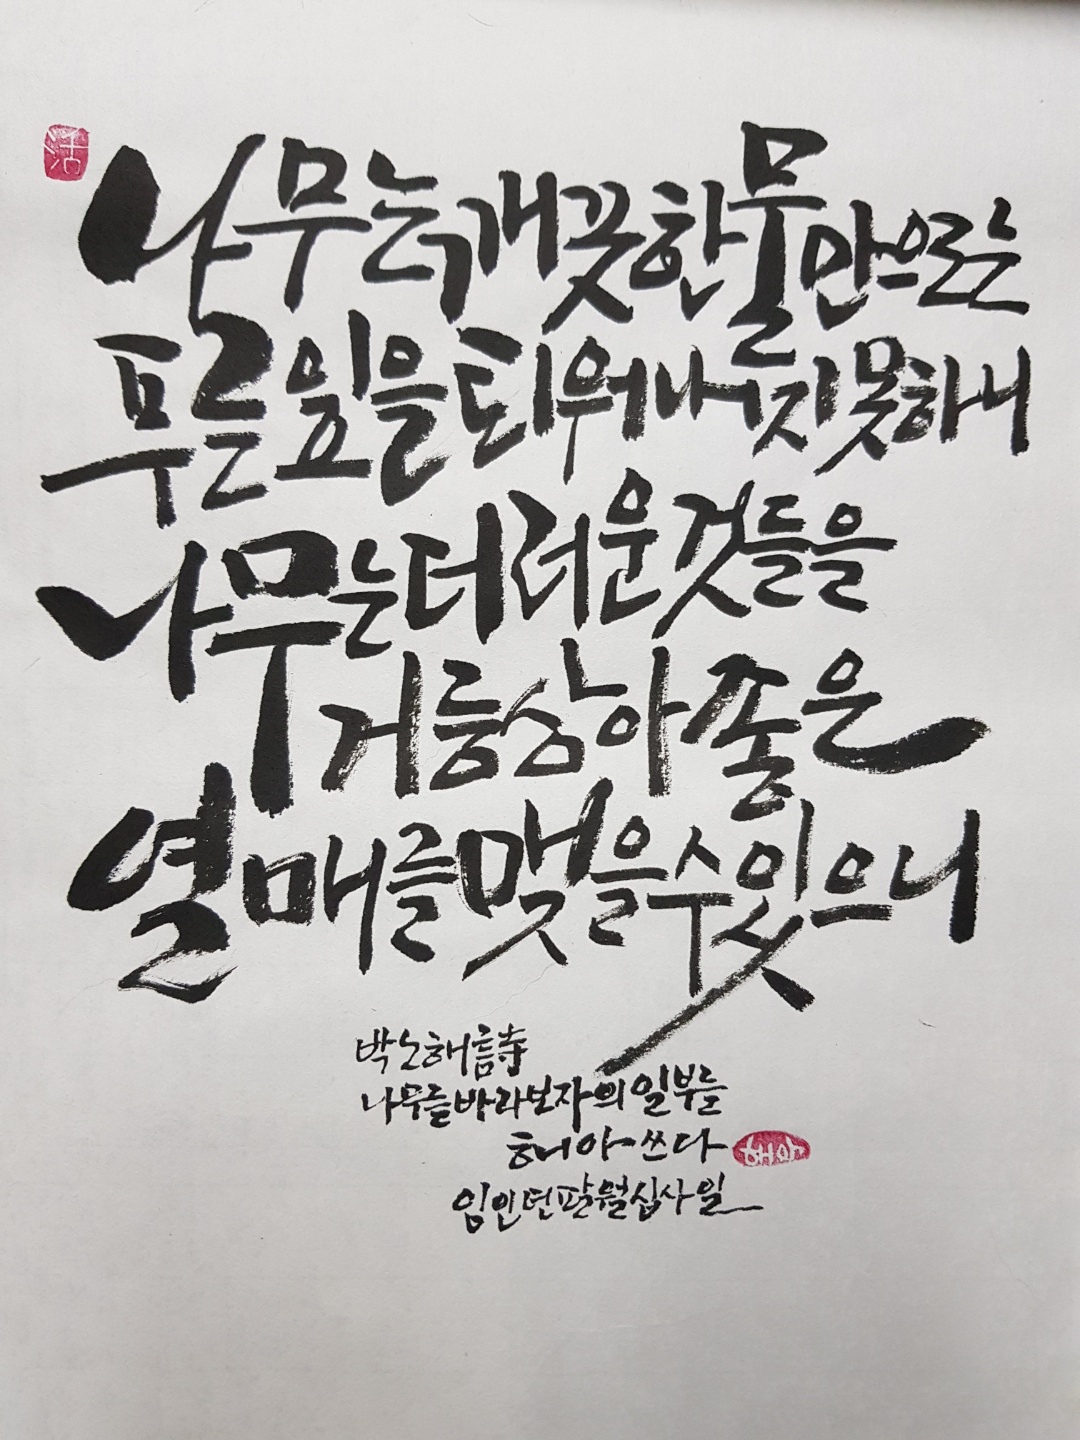 活
나무는 깨끗한 물만으로는
푸른 잎을 틔워내지 못하니
나무는 더러운 것들을
거름 삼아 좋은
열매를 맺을 수 있으니
박노해 詩
나무를 바라보자의 일부를
해아 쓰다
해아
임인년 팔월 십사일